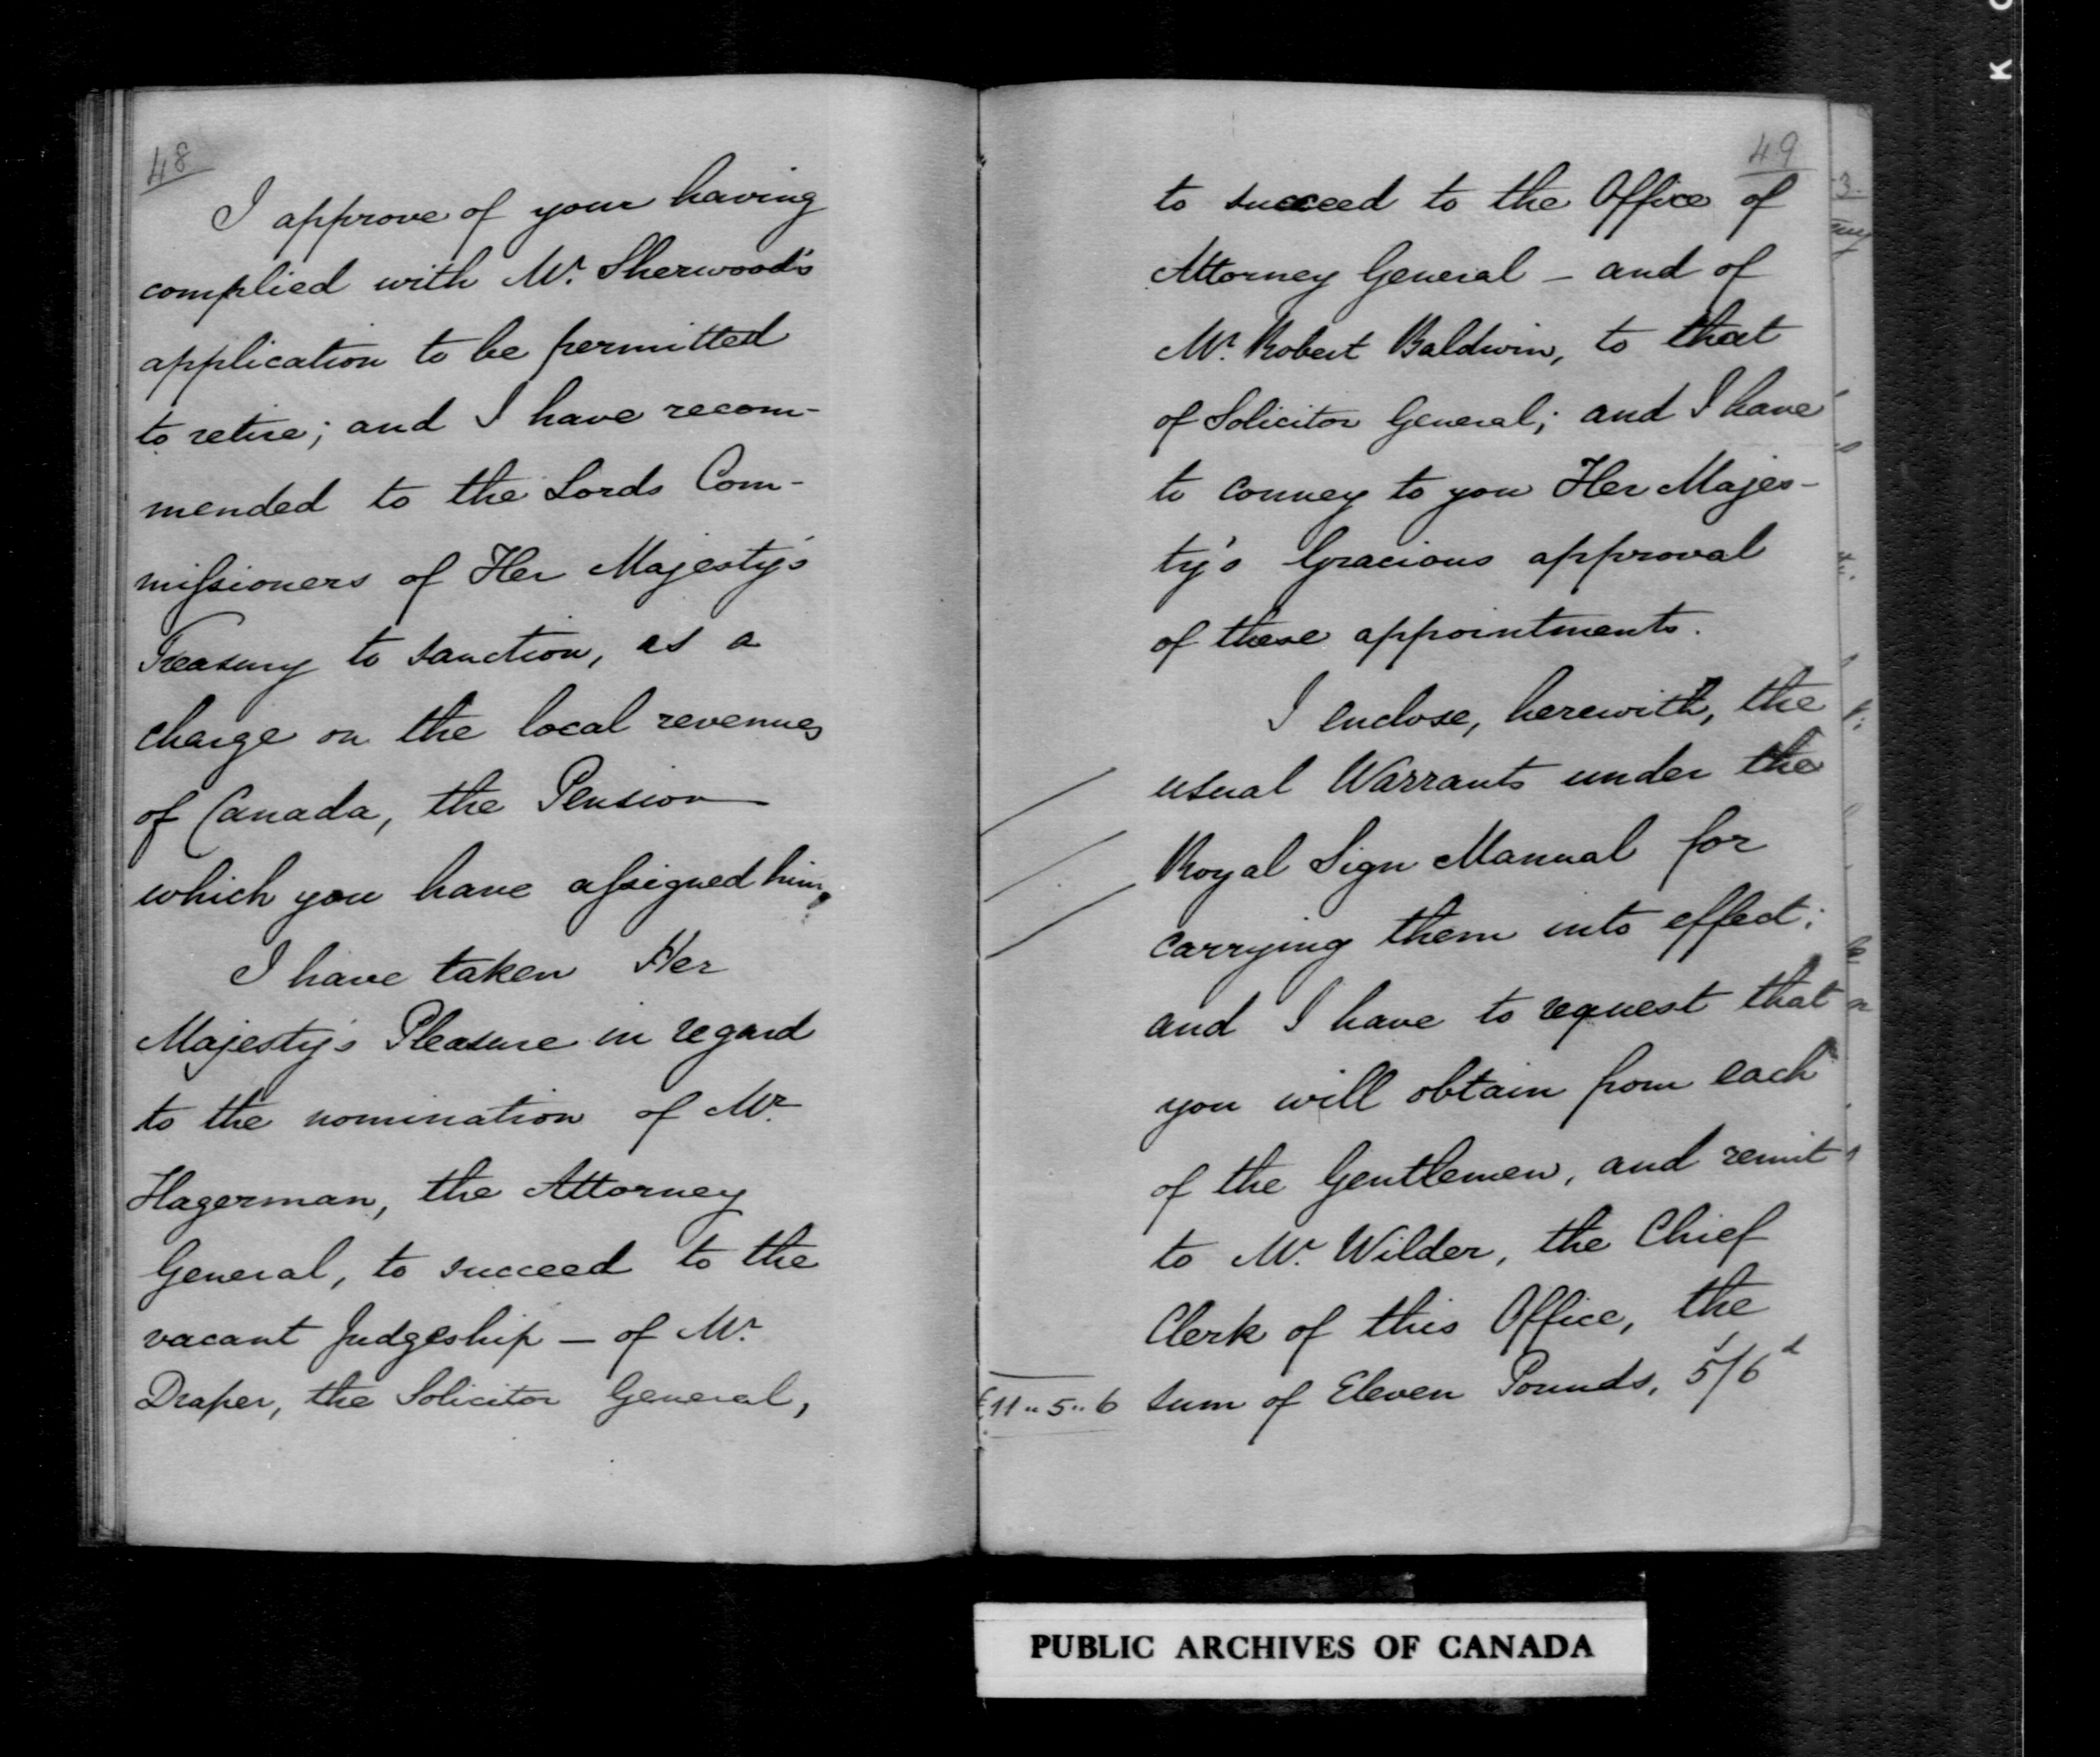 48
I approve of your having
complied with Mr. Sherwood's
application to be permitted
to retire; and I have recom-
mended to the Lords Com-
missioners of Her Majesty's
Treasury to sanction, as a
charge on the local revenues
of Canada, the Pension
which you have assigned him.
I have taken Her
Majesty's Pleasure in regard
to the nomination of Mr.
Hagerman, the Attorney
General, to succeed to the
vacant Judgeship — of Mr.
Draper, the Solicitor General,
49
to succeed to the Office of
Attorney General — and of
Mr. Robert Baldwin, to that
of Solicitor General; and I have
to convey to you Her Majes-
ty's Gracious approval
of these appointments.
I enclose, herewith, the
usual Warrants under the
Royal Sign Manual for
carrying them into effect;
and I have to request that
you will obtain from each
of the Gentlemen, and remit
to Mr. Wilder, the Chief
Clerk of this Office, the
£11..5..6 sum of Eleven Pounds, 5s/6d
PUBLIC ARCHIVES OF CANADA
K